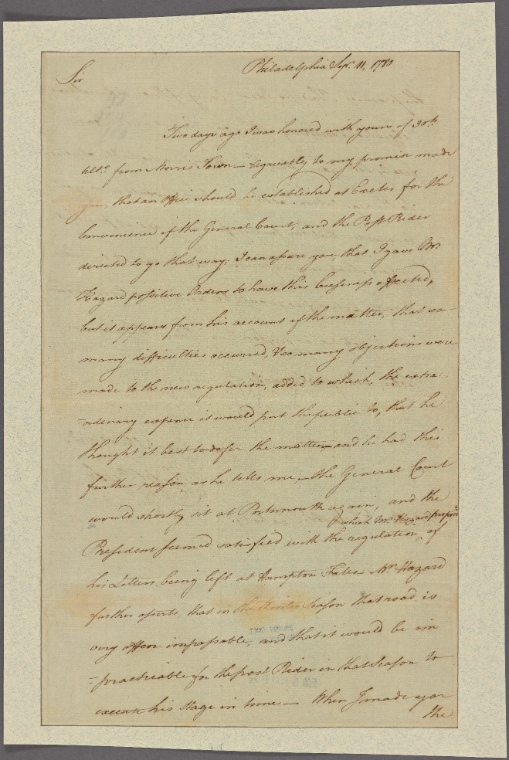 Philadelphia Sepr. 11. 1780
Sir
Two days ago I was honored with yours of 30th
Ulto. from Morris Town — Equially to my promise made
you, that an Office should be established at Exeter for the
Convenience of the General Court, and the Post Rider
directed to go that way; I can assure you, that I gave Mr
Hazard positive Orders to have this business effected,
but it appears from his account of the matter, that so
many difficulties occurred, & so many objections were
made to the new regulation, added to which, the extra
-ordinary expence it would put the public to, that he
thought it best to defer the matter — and he had this
further reason, as he tells me, — the General Court
would shortly sit at Portsmouth again, and the
which Mr. Hazard proposed
President seemed satisfied with the regulation, of
his Letters being left at Hampton Falls — Mr. Hazard
further asserts that in the Winter Season that road is
very often impassable, and that it would be im
-practicable for the post Rider in that Season to
execute his Stage in time — When I made you
the